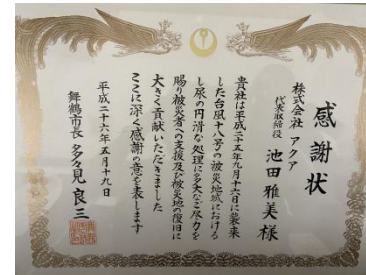 感謝状
株式会社 アクア
代表取締役 池田雅美様
貴社は平成二十五年九月十六日に襲来
した台風十八号の被災地域における
し尿の円滑な処理に多大なご尽力を
賜り被災者への支援及び被災地の復旧に
大きく貢献いただきました
ここに深く感謝の意を表します
平成二十六年五月十九日
舞鶴市長 多々見良三